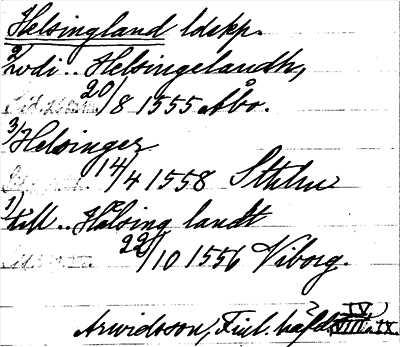 Helsingland ldskp.
2/ vdi.. Helsingelandh,
20/8 1555 Åbo.
3/ Helsinger
14/4 1558 Sthlm
1/ till.. Hælsing landt
22/10 1556 Viborg.
Arwidsson, Finl. häfd. IV,
VIII. IX.